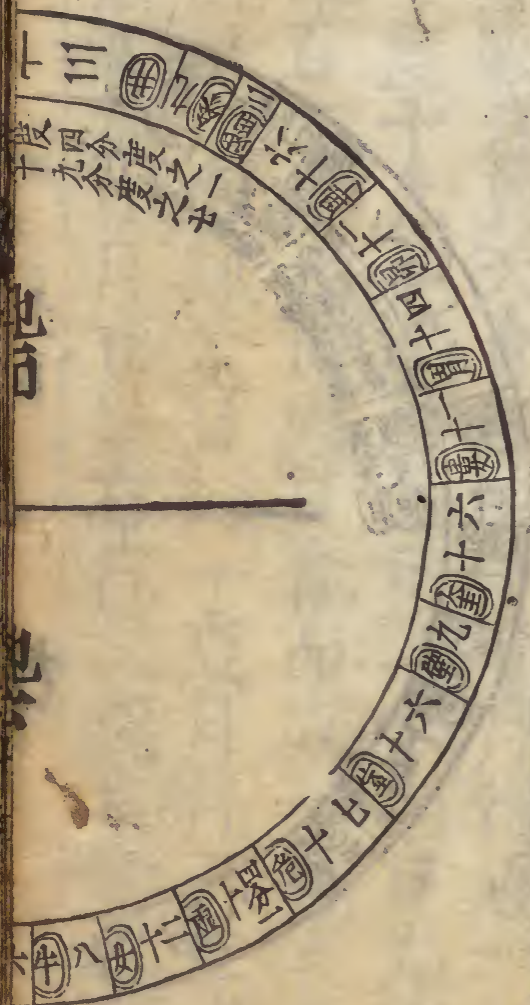 三
井
參九
觜二
畢十六
昴十一
胃十四
婁十二
奎十六
壁九
室十六
危十七
虛十四分一
女十二
牛八
度四分度之一
十九分度之七